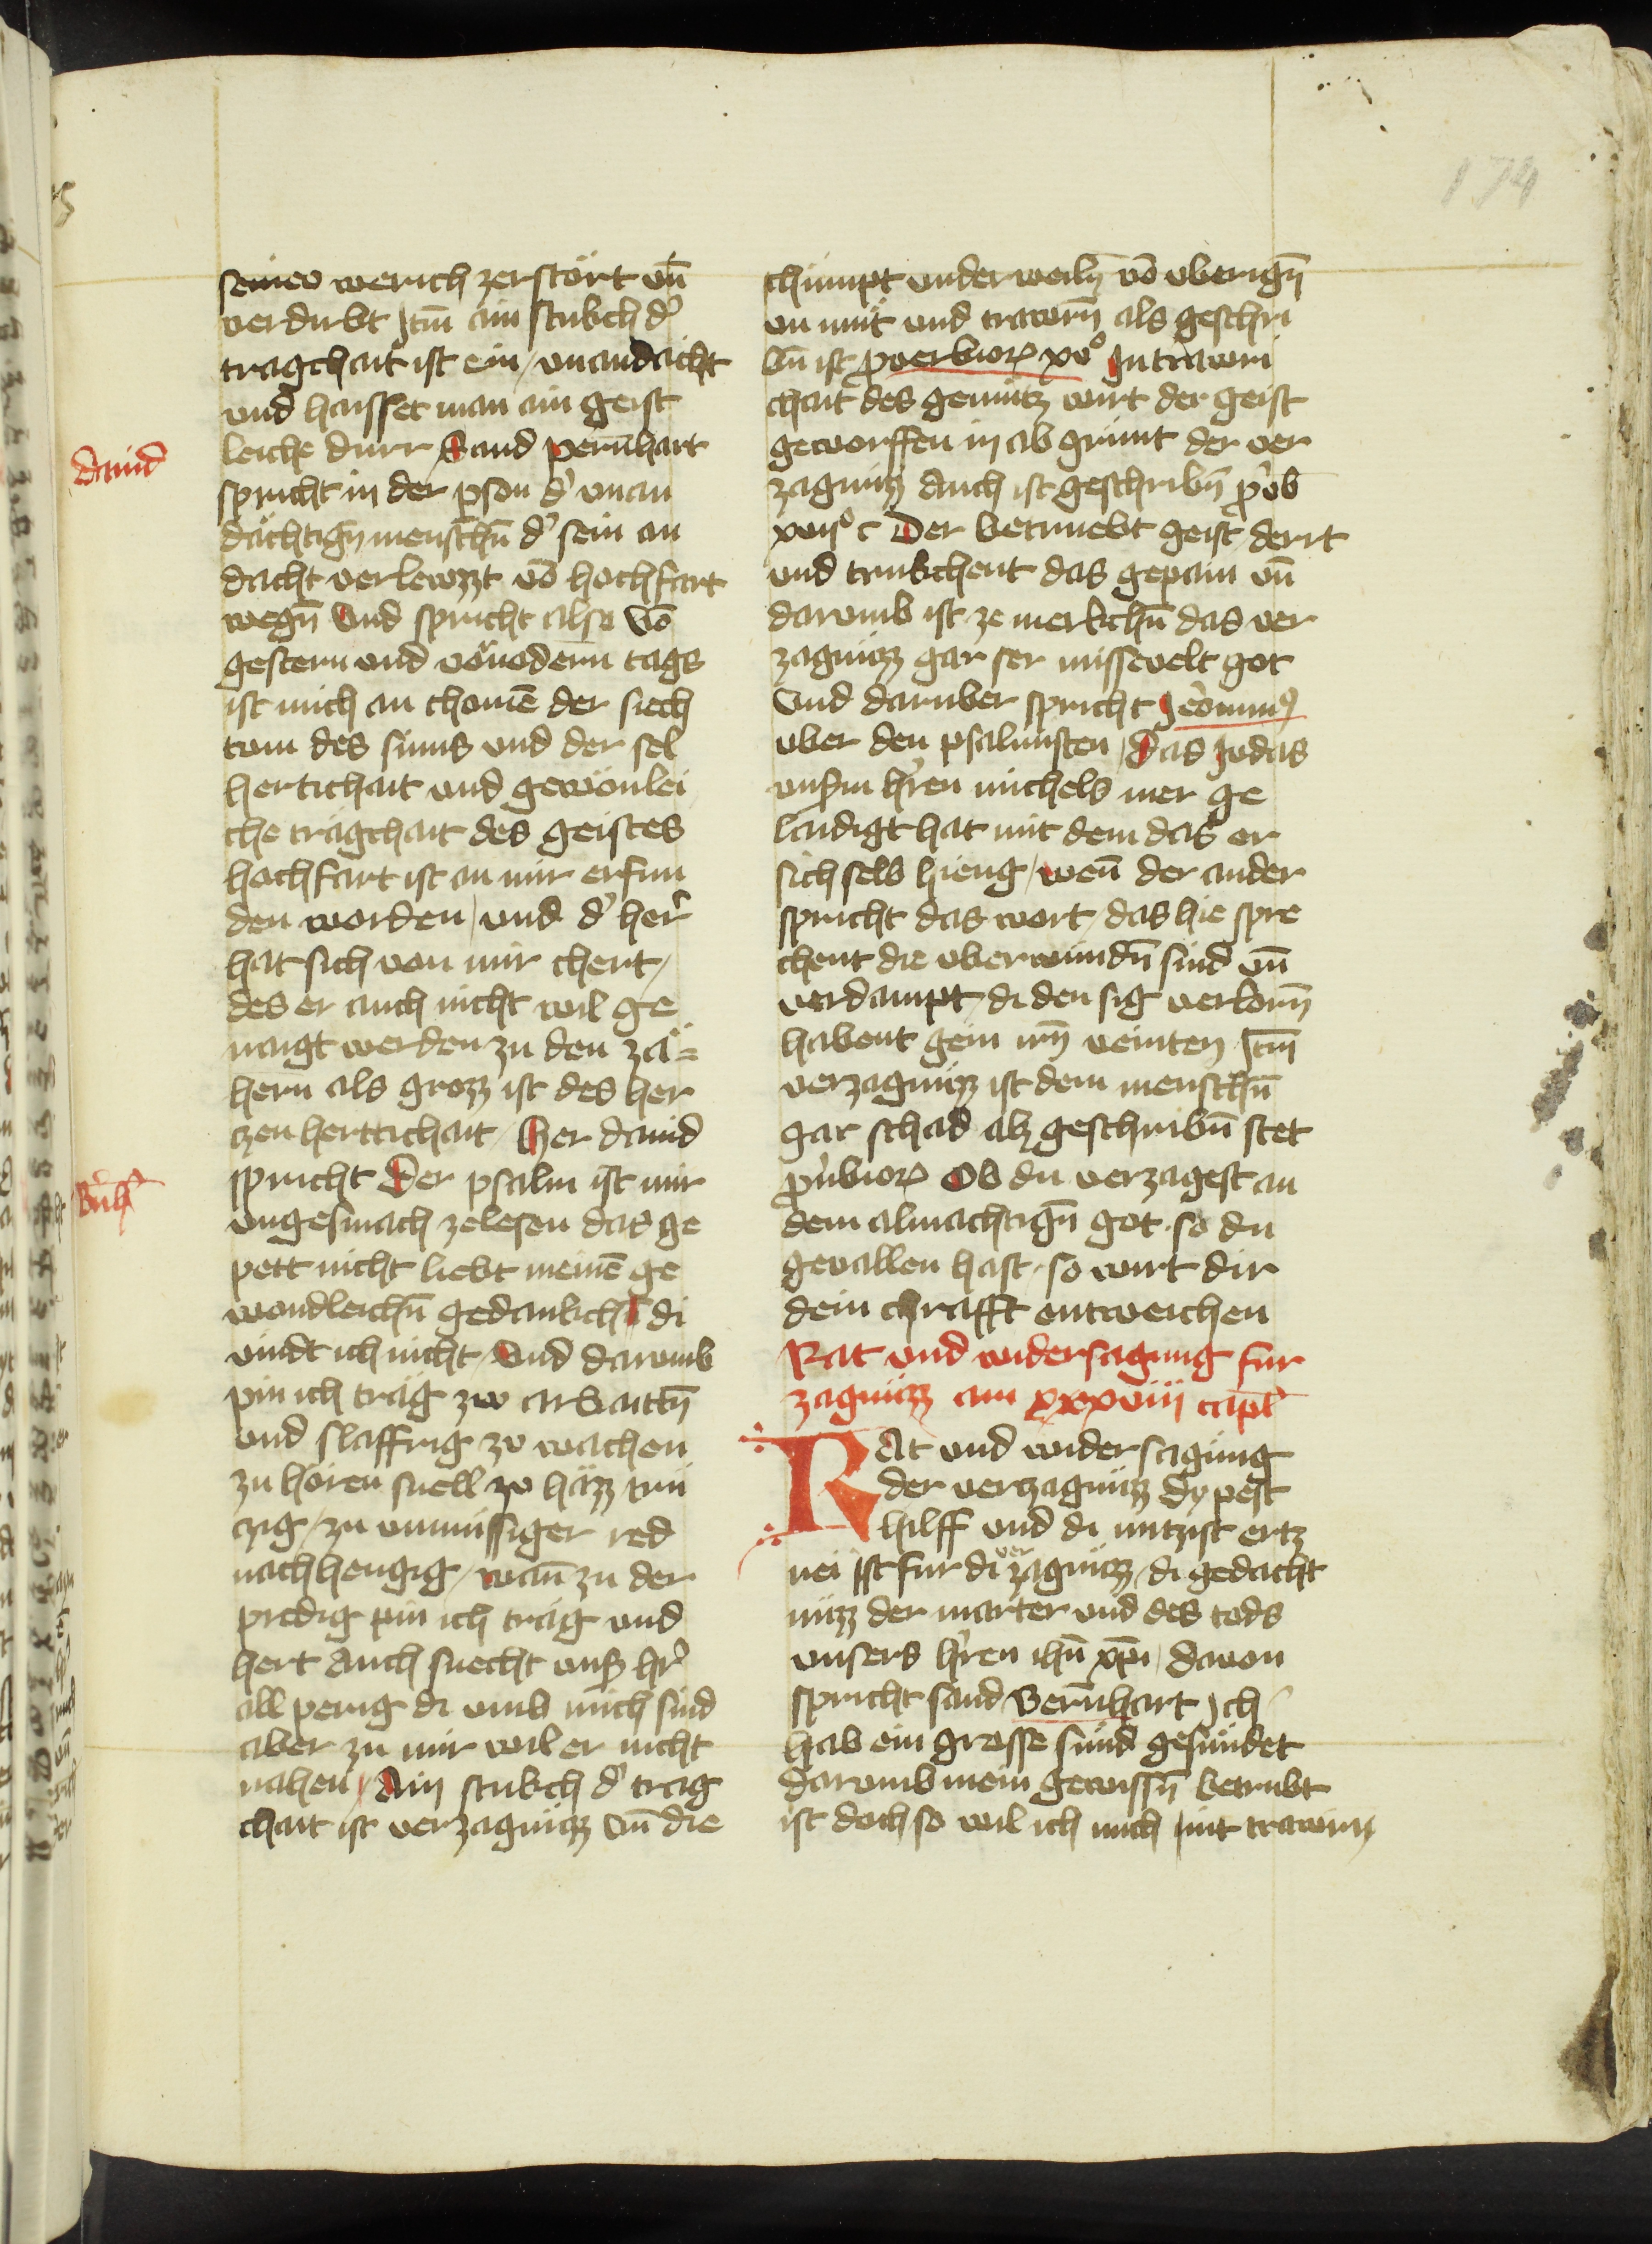 174
seinew werich zerstört vn̄
verdirbt Itm̄ ain stukch d'
tragchait ist ein / vnandacht
vnd haisset man ain geist
leiche dürr Sand pernhart
dauid
spricht in der pson d' vnan
dächtign̄ menschn̄ d' sein an
dacht verlewzzt vō hochfart
wegn̄ Vnd spricht also Vō
gestern vnd vöuodern tags
ist mich an chomē der siech
tum des sinns vnd der sel
hertichait vnd gewönlei
che tragchait des geistes
hochfart ist an mir erfun
den worden / vnd d' her'
hat sich von mir chert /
des er auch nicht wil ge
naigt werden zu den zä=
hern als grozz ist des her
czen herttichait / Her dauid
spricht Der psalm ist mir
Bn̄h
vngesmach zelesen das ge
pett nicht liebt meinē ge
wondleichn̄ gedankch di
vindt ich nicht / Vnd darumb
pin ich träg zw arbaittn̄
vnd slaffrig zu wachen
zu hören snell zu häzz trü
czig / zu vnmüssiger red
nachhengig / wan̄ zu der
predig pin ich träg vnd
hert Auch suecht vnß hr'
all perig di vmb mich sind
aber zu mir wil er nicht
nahen / Ain stukch d' trag
chait ist verzagnüzz vn̄ die
chümpt vnderweiln̄ vō vberign̄
vn müt vnd trawrn̄ als geschri
bn̄ ist proverbior xv° In trawri
chait des gemütz wirt der geist
geworffen in ab grünt der ver
zagnüzz Auch ist geschribn̄ prob
xvij° c Der betruebt geist / derrt
vnd trukchent das gepain vn̄
darumb ist ze merkchn̄ das ver
zagnüzz gar ser missevelt got
Vnd daruber spricht Jeronim9
vber den psalmisten / Das Judas
vnsm̄ hren michels mer ge
laidigt hat mit dem das er
sich selb hieng / wen̄ der ander
spricht das wort / das hie spre
chent die vberwundn̄ sind vn̄
verdampt / di den sig verlorn̄
habent gein irn̄ veinten Itm̄
verzagnüzz ist dem menschn̄
gar schad alz geschribn̄ stet
puerbior Ob du verzagest an
dem almachtign̄ got so du
gevallen hast / so wirt dir
dein chrafft entweichen
Rat vnd widersagung fur
zagnüzz am xxxviii capl
RAt vnd widersagung
der verzagnüzz Dy pest
hilff vnd di nutzist ertz
nei ist fur di verzagnüzz / di gedacht
nüzz der marter vnd des tods
vnsers hren ihu xpi / dauon
spricht sand Bernhart Ich
hab ein grosse sünd gesündet
darumb mein gewissn̄ betrubt
ist doch so wil ich mich mit trawrn